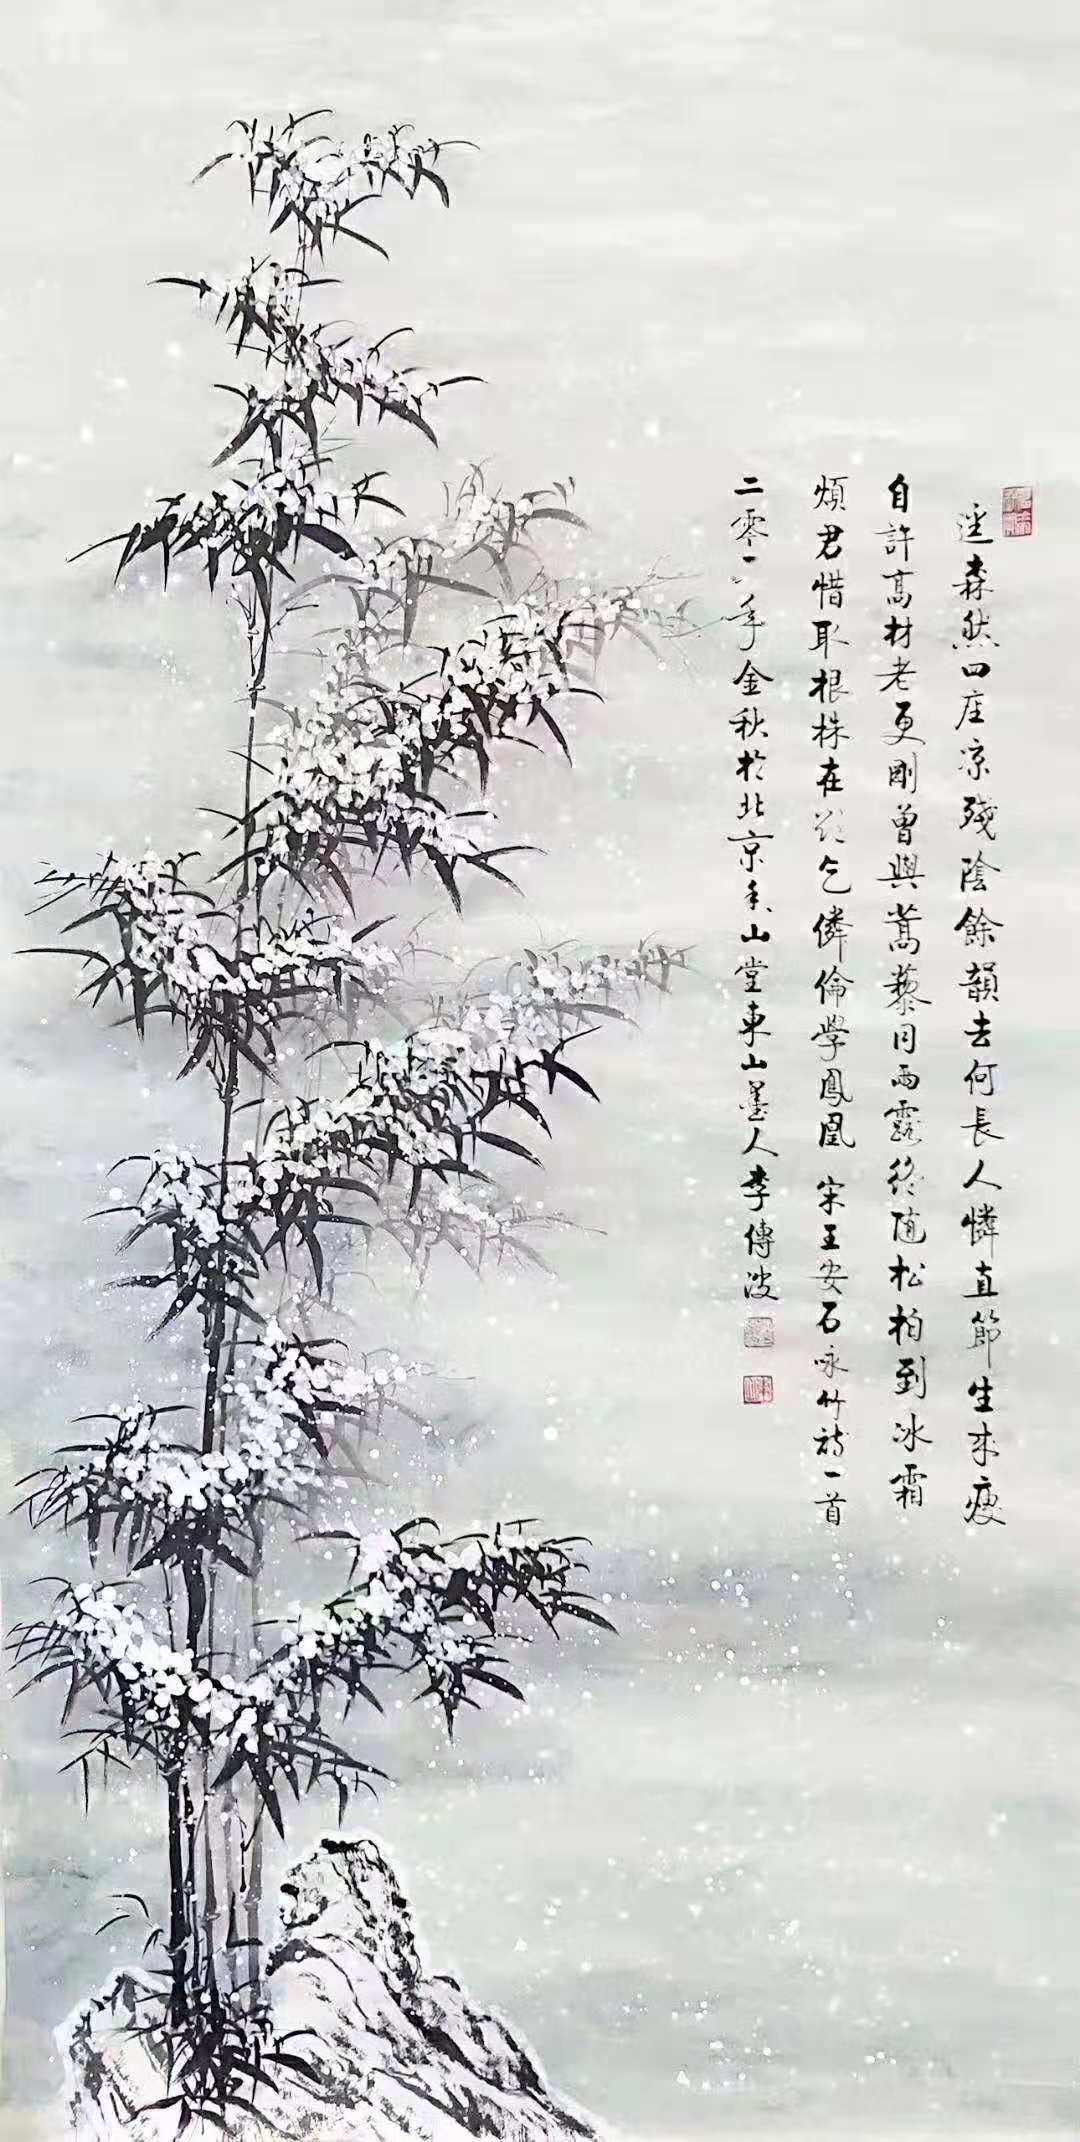 逕森然四座凉殘陰餘韻去何長人憐直節生来瘦
自許高材老更剛曾與蒿藜同雨露終随松柏到冰霜
煩君惜取根株在欲乞僯倫學鳳凰 宋王安石咏竹詩一首
二零一八年金秋於北京香山堂東山墨人李傳波